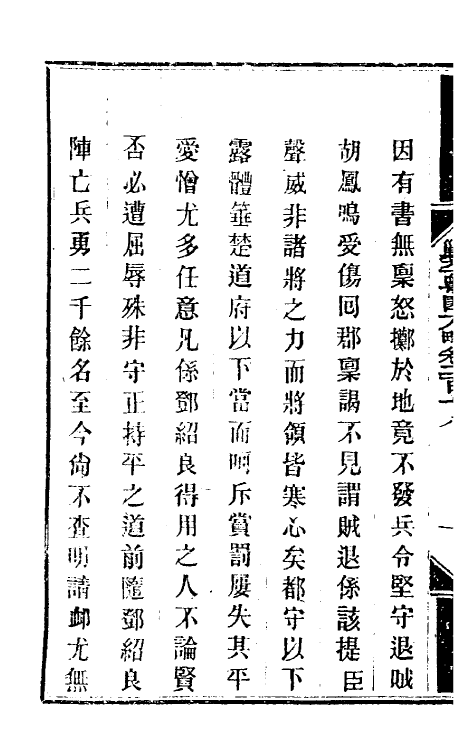 因有書無稟怒擲於地竟不發兵令堅守退賊
胡鳳鳴受傷囘郡稟謁不見謂賊退係該提臣
聲威非諸將之力而將領皆寒心矣都守以下
露體箠楚道府以下當面呵斥賞罰屢失其平
愛憎尤多任意凡係鄧紹良得用之人不論賢
否必遭屈辱殊非守正持平之道前隨鄧紹良
陣亡兵勇二千餘名至今尙不查明請卹尤無